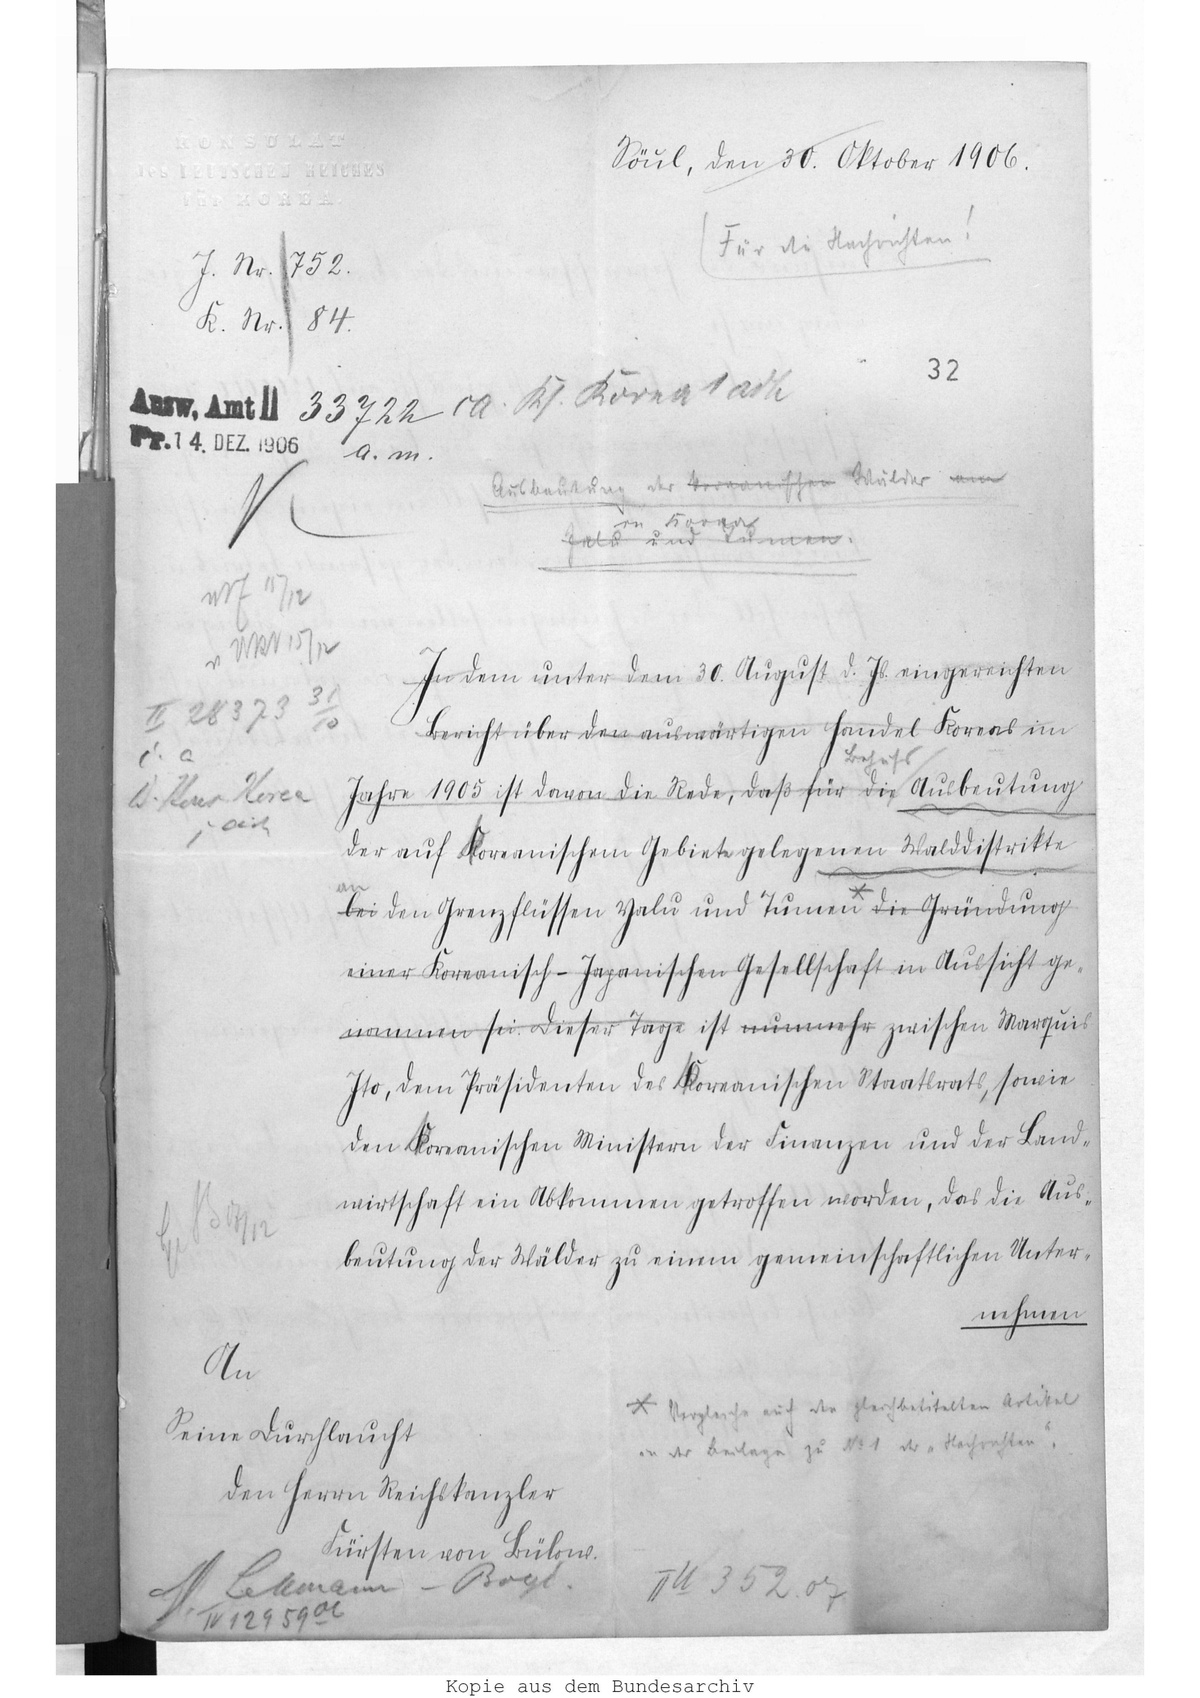 KONSULAT
DES DEUTSCHEN REICHES
FÜR KOREA.
Söul, den 30. Oktober 1906.
Für die Nachrichten!
J. Nr. 752.
K. Nr. 84.
32
Ausw. Amt II 33722
Pr. 14. DEZ. 1906
a. m.
Ausbeutung der Koreanischen Wälder am
in Korea
Jalu und Tumen.
15/12
II 28373 31/10
In dem unter dem 30. August d. Js. eingereichten
Bericht über den auswärtigen Handel Koreas im
Behufs
Jahre 1905 ist davon die Rede, daß für die Ausbeutung
der auf Koreanischem Gebiete gelegenen Walddistrikte
an
bei den Grenzflüssen Yalu und Tumen die Gründung
einer Koreanisch-Japanischen Gesellschaft in Aussicht ge-
nommen sei. Dieser Tage ist nunmehr zwischen Marquis
Ito, dem Präsidenten des Koreanischen Staatsrats, sowie
den Koreanischen Ministern der Finanzen und der Land-
wirtschaft ein Abkommen getroffen worden, das die Aus-
beutung der Wälder zu einem gemeinschaftlichen Unter-
nehmen
An
Seine Durchlaucht
den Herrn Reichskanzler
Fürsten von Bülow.
Vergleiche auch den gleichbetitelten Artikel
in der Beilage zu No 1 der „Nachrichten".
IV 12959 06
II U 352.07
Kopie aus dem Bundesarchiv